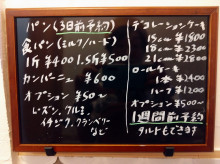 パン(3日前予約)
食パン(ミルク/ハード)
1斤 ¥400 1.5斤 ¥500
カンパーニュ ¥600
オプション ¥50〜
レーズン、クルミ、
イチジク、クランベリー
など
デコレーションケーキ
15cm ¥1800
18cm ¥2300
21cm ¥2800
ロールケーキ
1本 ¥2400
ハーフ ¥1200
オプション ¥500〜
1週間前予約
タルトもできます